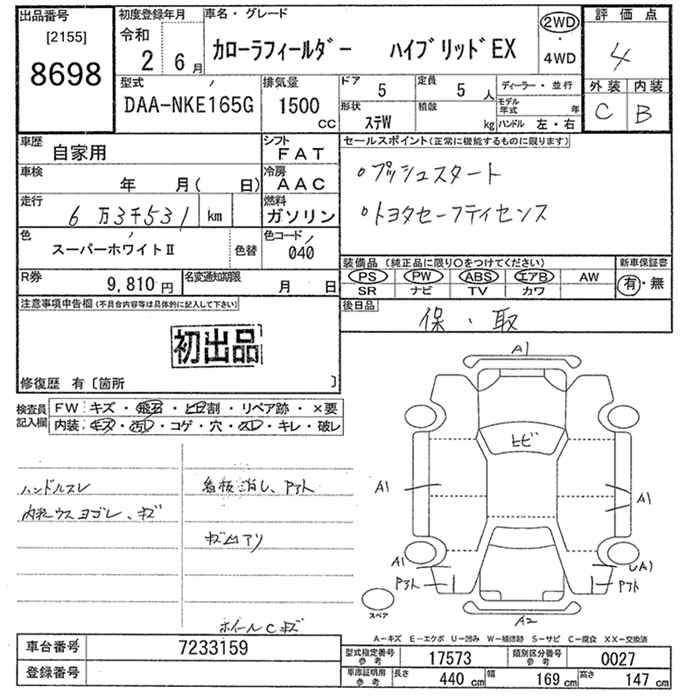 出品番号
[2155]
8698
初度登録年月
令和
2 6月
車名・グレード
カローラフィールダー ハイブリッドEX
2WD
・
4WD
評価点
4
外装 内装
C B
型式
DAA-NKE165G
排気量
1500
CC
ドア
5
定員
5人
形状
ステW
積載
kg
ディーラー・並行
モデル
年式 年
ハンドル 左・右
車歴
自家用
シフト
FAT
車検
年 月( 日)
冷房
AAC
走行
6万3千531 km
燃料
ガソリン
色
スーパーホワイトⅡ
色替
色コード
040
R券
9,810円
名変通知期限
月 日
セールスポイント(正常に機能するものに限ります)
○プッシュスタート
○トヨタセーフティセンス
装備品 (純正品に限り○をつけてください)
新車保証書
PS PW ABS エアB AW
SR ナビ TV カワ
有・無
後日品
保・取
注意事項申告欄(不具合内容等は具体的に記入して下さい)
初出品
修復歴 有〔箇所 〕
検査員
記入欄
FW:キズ・飛石・ヒビ割・リペア跡・×要
内装:キズ・汚レ・コゲ・穴・スレ・キレ・破レ
ハンドルスレ
内装ウスヨゴレ、キズ
看板消し、アト
キズ凹アリ
ホイールCキズ
A1
ヒビ
A1
A1
A1
アト
UA1
アト
スペア
A2
A-キズ E-エクボ U-凹み W-補修跡 S-サビ C-腐食 XX-交換済
車台番号
7233159
登録番号
型式指定番号
参考
17573
類別区分番号
参考
0027
車庫証明用
参考
長さ
440 cm
幅
169 cm
高さ
147 cm